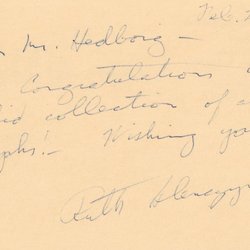 Feb.
Mr. Hedborg –
Congratulations
collection of a
Wishing you
Ruth